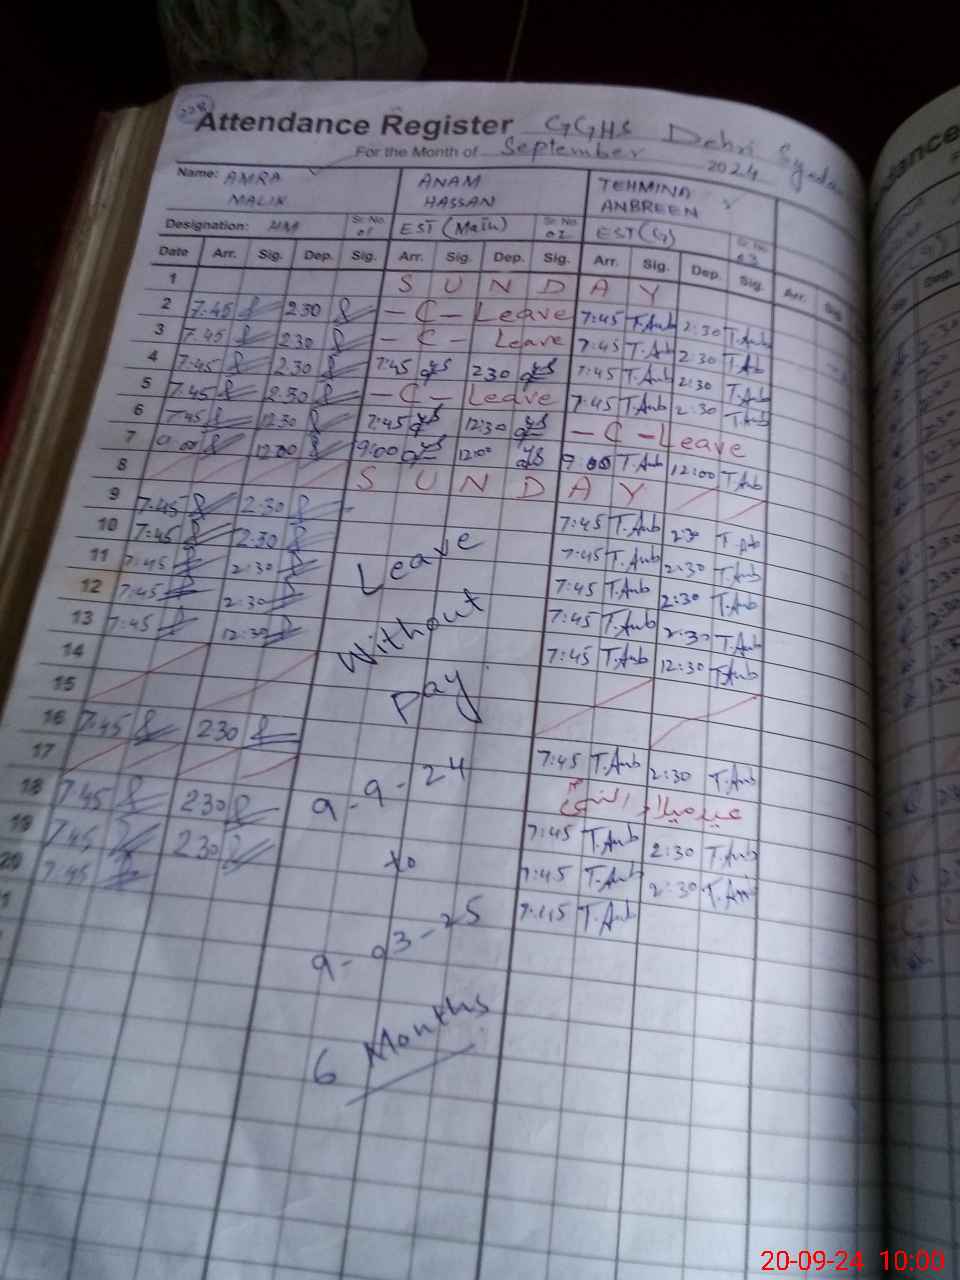 228
Attendance Register GGHS Dehri Syedan
For the Month of September 2024
Name: AMRA MALIK ANAM HASSAN TEHMINA ANBREEN
Designation: HM Sr. No. 01 EST (Math) Sr. No. 02 EST (G) Sr. No. 03
Date Arr. Sig. Dep. Sig. Arr. Sig. Dep. Sig. Arr. Sig. Dep. Sig. Arr. Sig
1 S U N D A Y
2 7:45 2:30 - C - Leave 7:45 T.Anb 2:30 T.Anb
3 7:45 230 - C - Leave 7:45 T.Ab 2:30 T.Ab
4 7:45 2:30 7:45 230 7:45 T.Anb 2:30 T.Anb
5 7:45 2:30 - C - Leave 7:45 T.Anb 2:30 T.Anb
6 7:45 12:30 7:45 12:30 - C - Leave
7 9:00 12:00 9:00 12:00 9:00 T.Anb 12:00 T.Anb
8 S U N D A Y
9 7:45 2:30 7:45 T.Anb 2:30 T.Ab
10 7:45 2:30 7:45 T.Anb 2:30 T.Anb
11 7:45 2:30 7:45 T.Anb 2:30 T.Anb
12 7:45 2:30 7:45 T.Anb 2:30 T.Anb
13 7:45 12:30 7:45 T.Anb 12:30 T.Anb
14
15
16 7:45 230 7:45 T.Anb 2:30 T.Anb
17 عید میلاد النبیؐ
18 7:45 230 7:45 T.Anb 2:30 T.Anb
19 7:45 230 7:45 T.Anb 2:30 T.Anb
20 7:45 7:45 T.Anb
Leave
Without
pay
9-9-24
to
9-03-25
6 Months
20-09-24 10:00